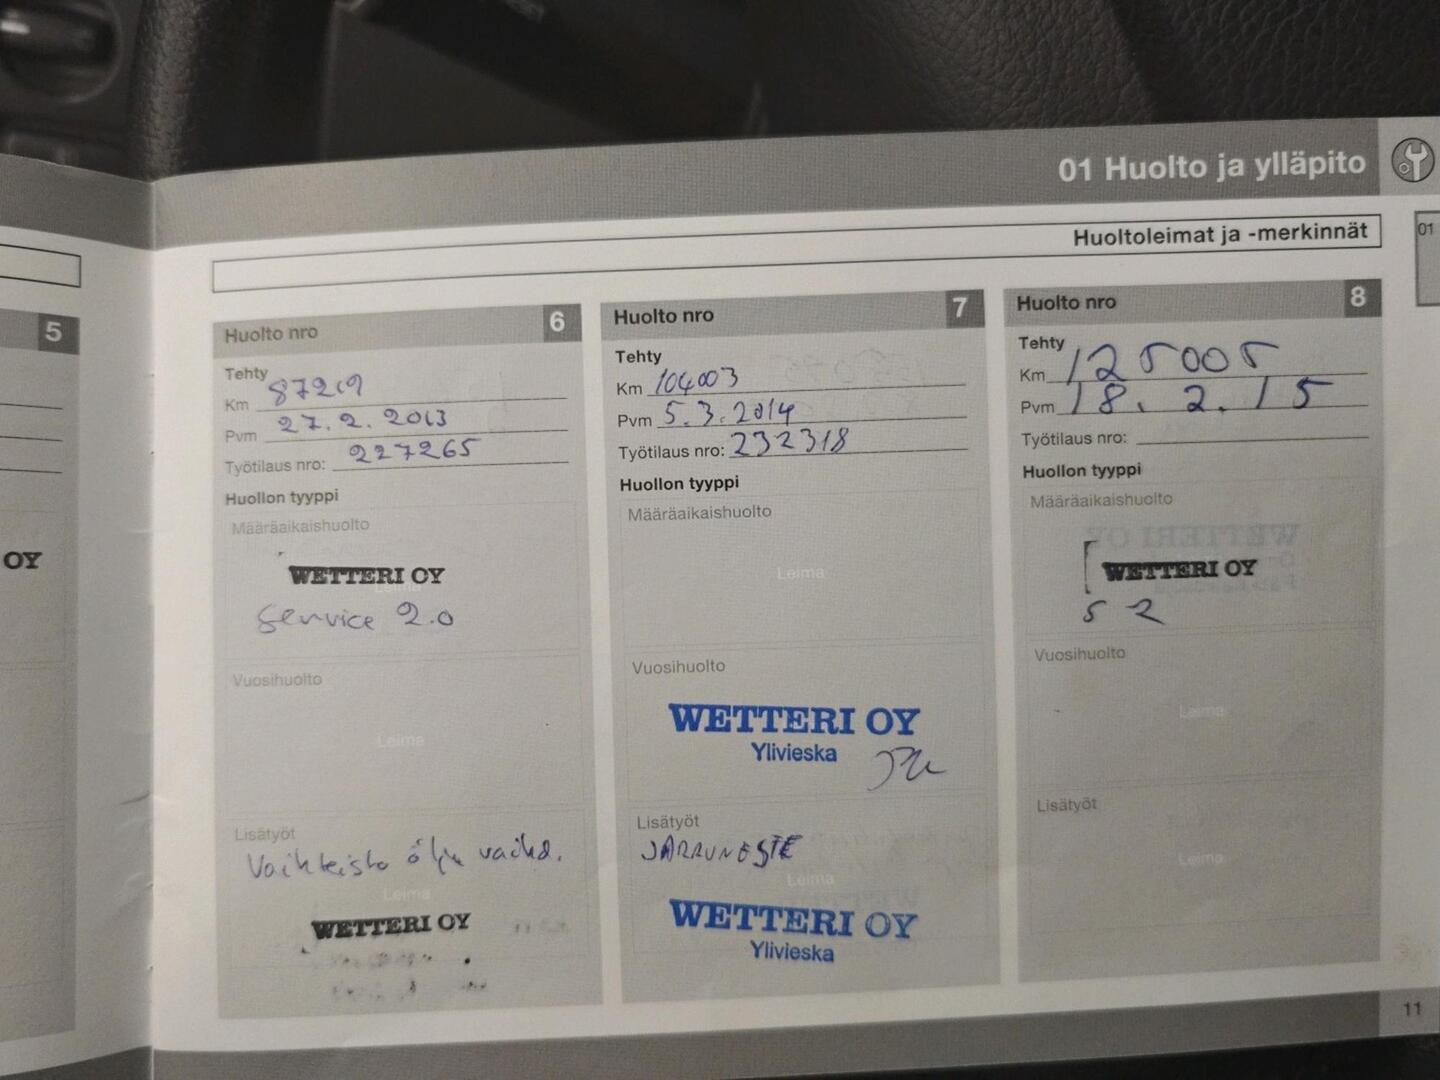 01 Huolto ja ylläpito
Huoltoleimat ja -merkinnät
01
5
OY
Huolto nro 6
Tehty
Km 87219
Pvm 27.2.2013
Työtilaus nro: 227265
Huollon tyyppi
Määräaikaishuolto
Leima
WETTERI OY
Service 2.0
Vuosihuolto
Leima
Lisätyöt
Vaihteisto öljy vaihd.
Leima
WETTERI OY
Huolto nro 7
Tehty
Km 104003
Pvm 5.3.2014
Työtilaus nro: 232318
Huollon tyyppi
Määräaikaishuolto
Leima
Vuosihuolto
WETTERI OY
Ylivieska
Lisätyöt
JARRUNESTE
Leima
WETTERI OY
Ylivieska
Huolto nro 8
Tehty
Km 125005
Pvm 18.2.15
Työtilaus nro:
Huollon tyyppi
Määräaikaishuolto
WETTERI OY
S 2
Vuosihuolto
Leima
Lisätyöt
Leima
11